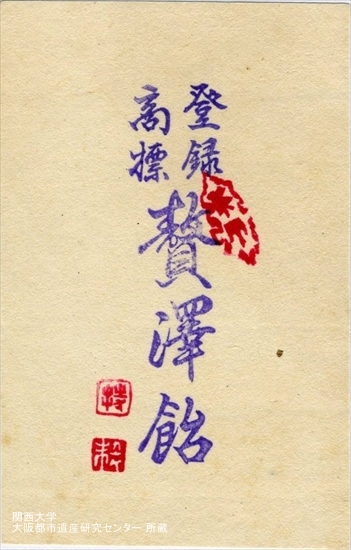 登録
商標
贅澤飴
特
製
関西大学
大阪都市遺産研究センター 所蔵